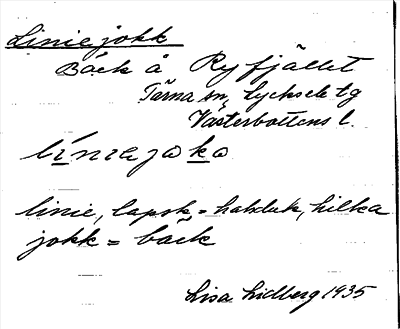 Liniejokk
Bäck å Ryfjället
Tärna sn, Lycksele tg
Västerbottens l.
líniejoko
linie, lapsk = halsduk, hilka
jokk = bäck
Lisa Lidberg 1935